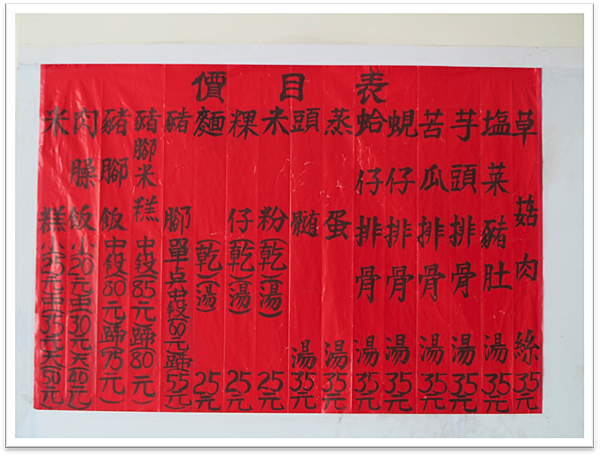 價目表
米糕(小25元中35元大50元)
肉臊飯(小20元中30元大40元)
豬腳飯(中段80元蹄75元)
豬腳米糕(中段85元蹄80元)
豬腳(單点中段60元蹄55元)
麵(乾)(湯)25元
粿仔(乾)(湯)25元
米粉(乾)(湯)25元
頭髓湯35元
蒸蛋湯35元
蛤仔排骨湯35元
蜆仔排骨湯35元
苦瓜排骨湯35元
芋頭排骨湯35元
塩菜豬肚湯35元
草菇肉絲35元